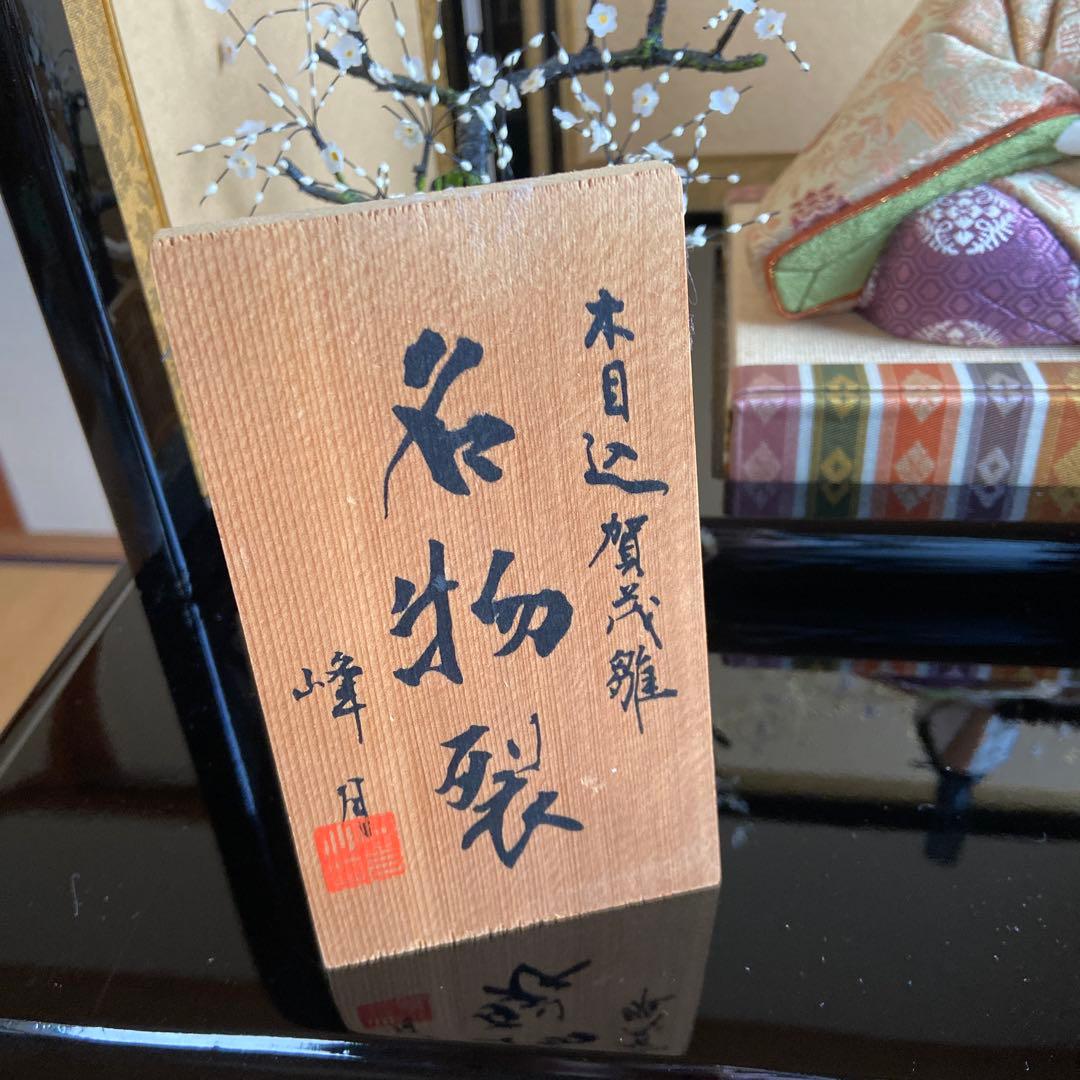 木目込賀茂雛
名物裂
峰月